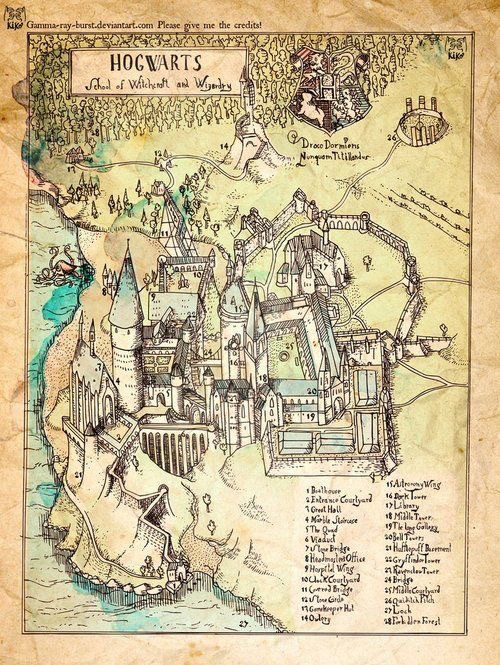 KiKó Gamma-ray-burst.deviantart.com Please give me the credits!
KiKó
HOGWARTS
School of Witchcraft and Wizardry
Draco Dormiens
Nunquam Titillandus
1 Boathouse
2 Entrance Courtyard
3 Great Hall
4 Marble Staircase
5 The Quad
6 Viaduct
7 Stone Bridge
8 Headmaster Office
9 Hospital Wing
10 Clock Courtyard
11 Covered Bridge
12 Stone Circle
13 Gamekeeper Hut
14 Owlery
15 Astronomy Wing
16 Dark Tower
17 Library
18 Middle Tower
19 The long Gallery
20 Bell Towers
21 Hufflepuff Basement
22 Gryffindor Tower
23 Ravenclaw Tower
24 Bridge
25 Middle Courtyard
26 Quidditch Pitch
27 Loch
28 Forbidden Forest
28
13
12
14
26
11
10
8
7
4
3
2
25
18
20
19
21
1
27